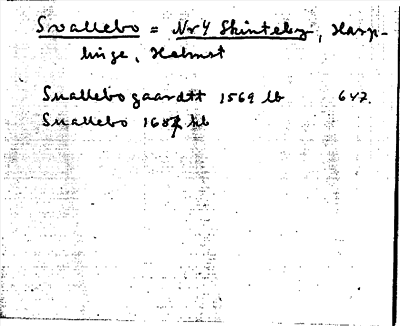 Svallebo = Nr 4 Skinteby, Harp-
linge, Halmst
Suallebo gaardtt 1569 lb 647.
Suallebo 1687 jb